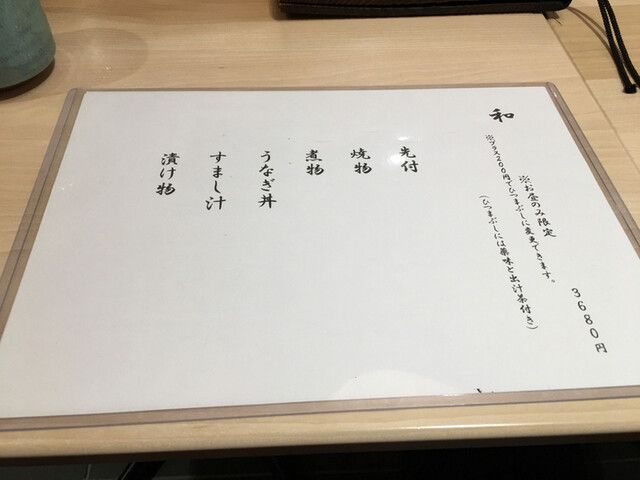 和
※お昼のみ限定
※プラス200円でひつまぶしに変更できます。
(ひつまぶしには薬味と出汁茶付き)
3680円
先付
焼物
煮物
うなぎ丼
すまし汁
漬け物